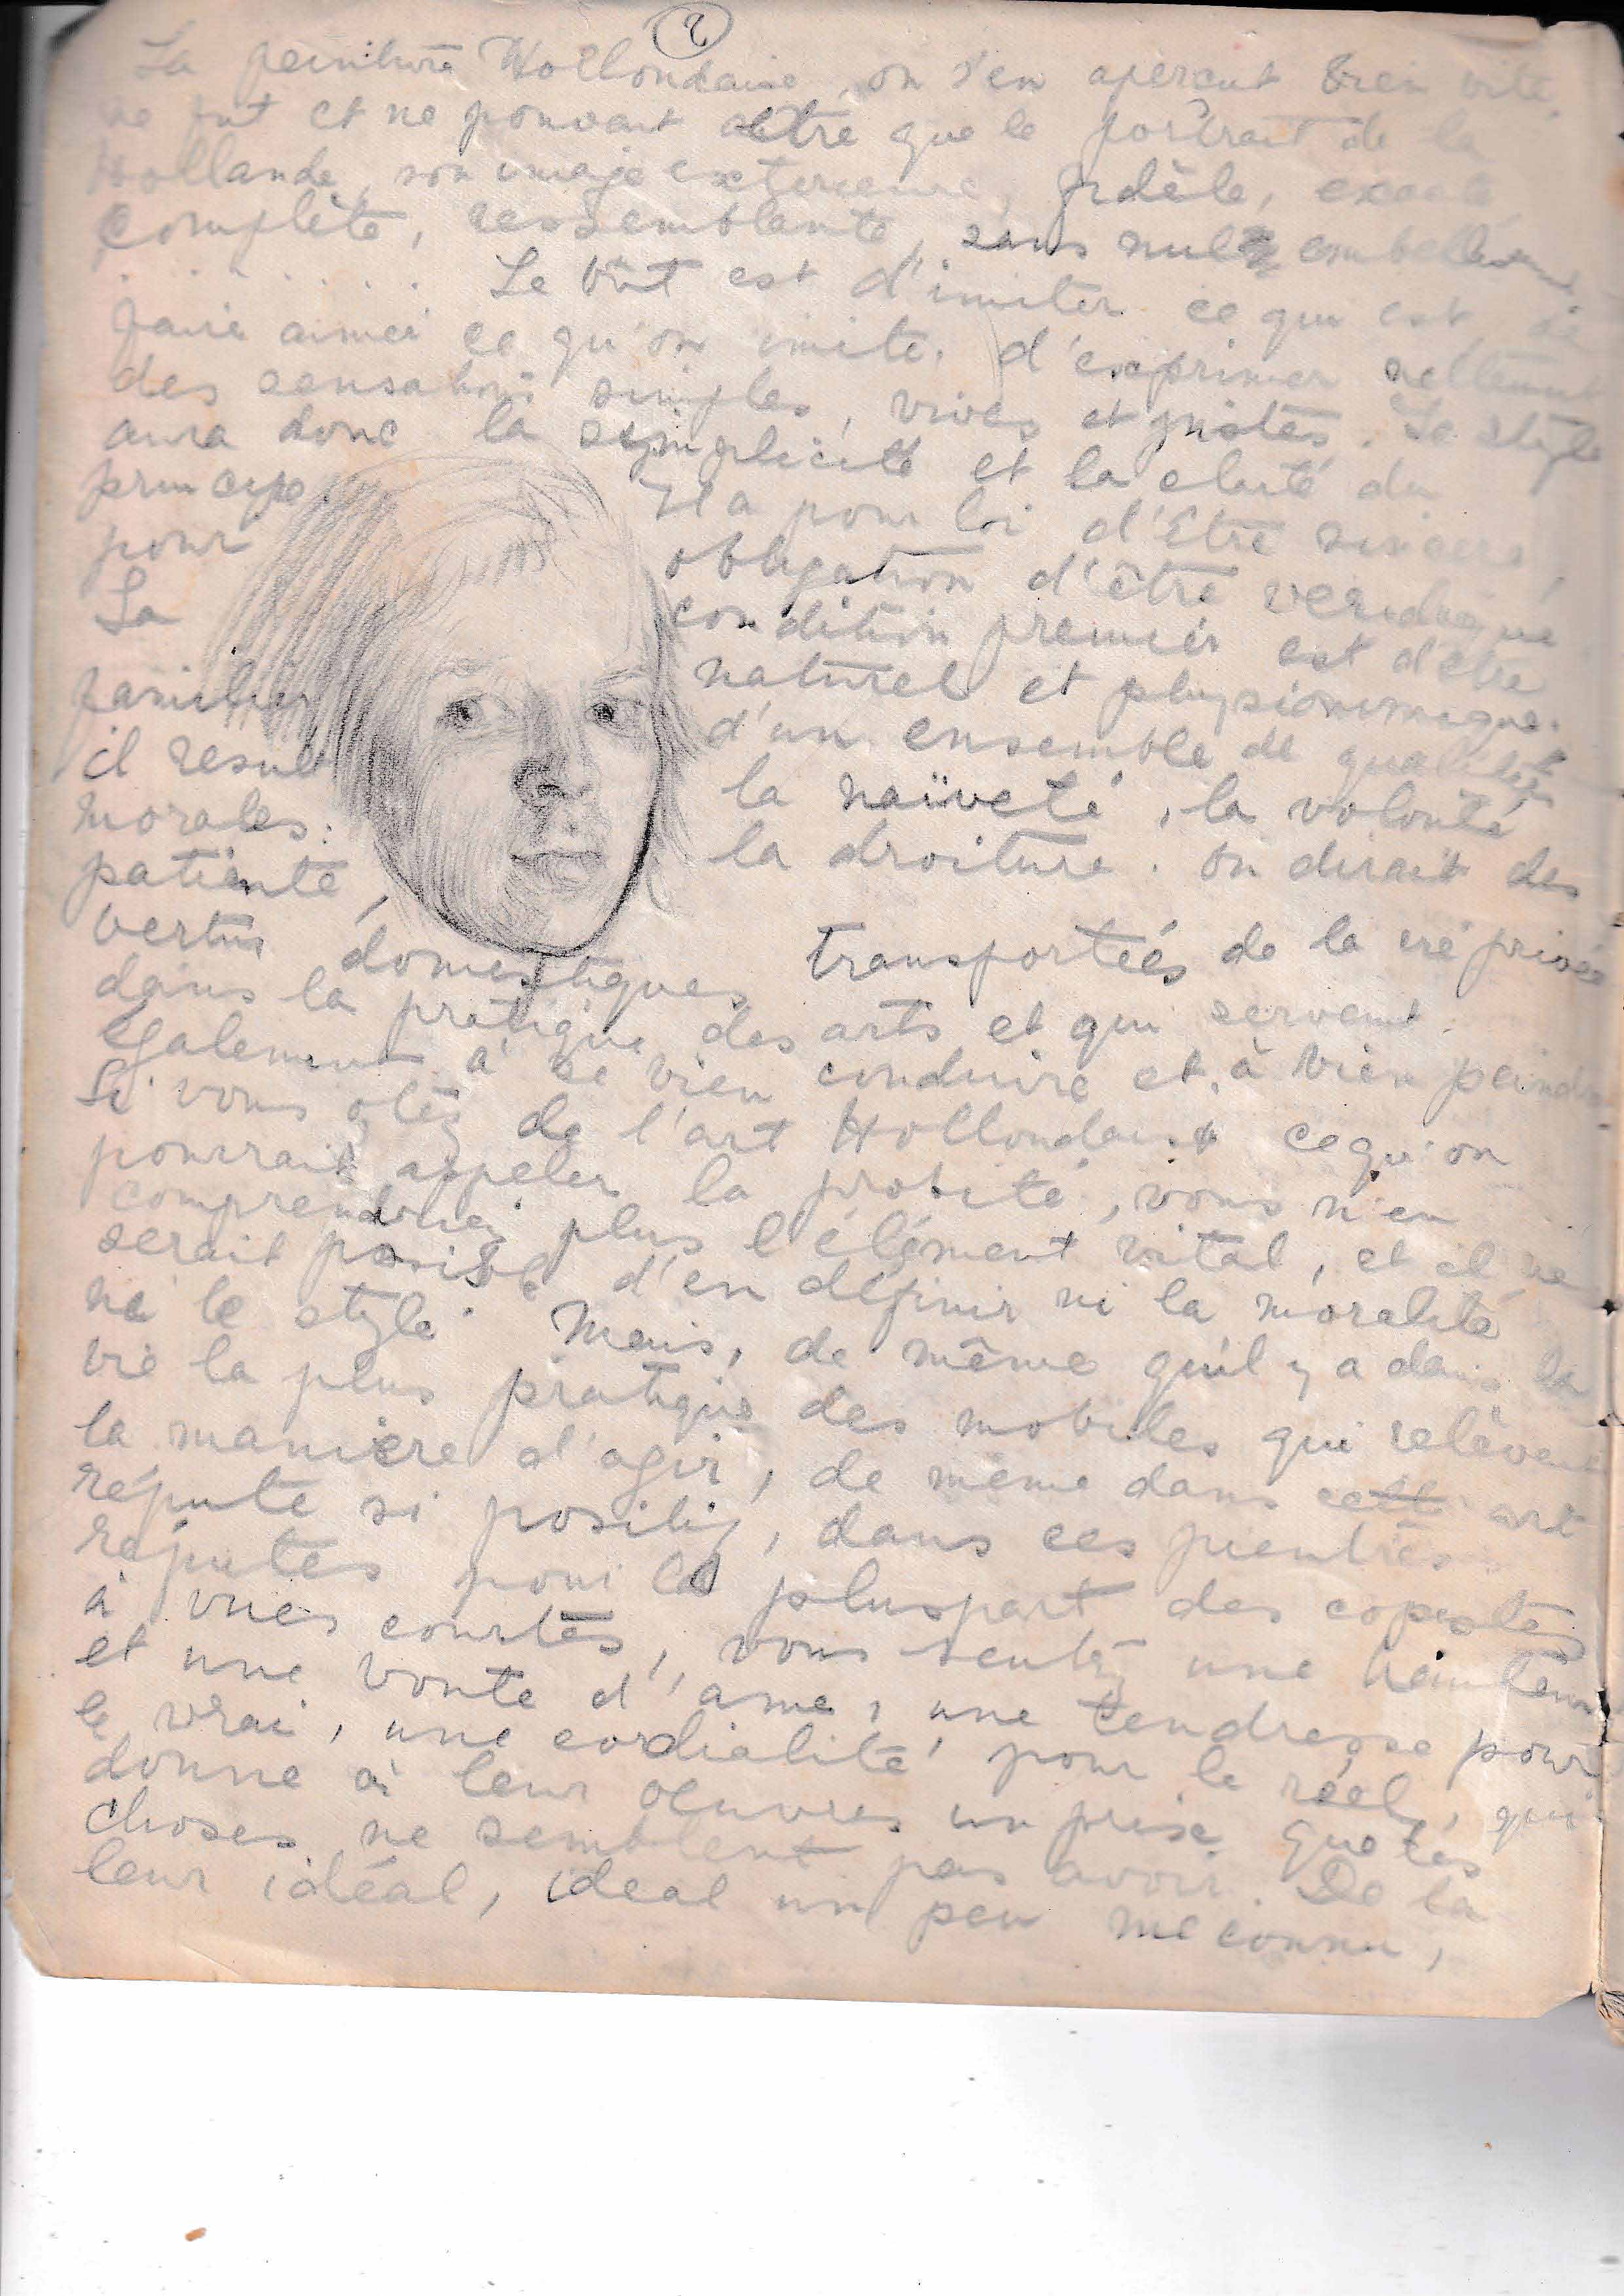 2
La peinture Hollondaise, on s'en apercut bien vite,
ne fut et ne pouvait être que le portrait de la
Hollande, son image exterieure, fidèle, exacte,
complète, ressemblante, sans nul embellissement
. . . . . . . Le but est d'imiter ce qui est, de
faire aimer ce qu'on imite, d'exprimer nettement
des sensations simples, vives et justes. Le style
aura donc la simplicité et la clarté du
principe. Il a pour loi d'être sincere,
pour obligation d'être veridique
La condition premier est d'etre
familier naturel et physionomique.
il resulte d'un ensemble de qualités
morales: la naïveté, la volonté
patiente, la droiture. on dirait des
vertus domestiques transportées de la vie privée
dans la pratique des arts et qui servent
egalement à se bien conduire et à bien peindre
Si vous otez de l'art Hollondais ce qu'on
pourrait appeler la probité, vous n'en
comprendriez plus l'élément vital, et il ne
serait possible d'en définir ni la moralité
ni le style. Mais, de même qu'il y a dans la
vie la plus pratique des mobiles qui relèvent
la maniere d'agir, de même dans cet art
réputé si positif, dans ces peintres
réputés pour la pluspart des copistes
à vues courtes, vous sentez une hauteur
et une bonté d'ame, une tendresse pour
le vrai, une cordialité pour le réel, qui
donne à leur oeuvres un prix que les
choses ne semblent pas avoir. De là
leur idéal, ideal un peu meconnu,